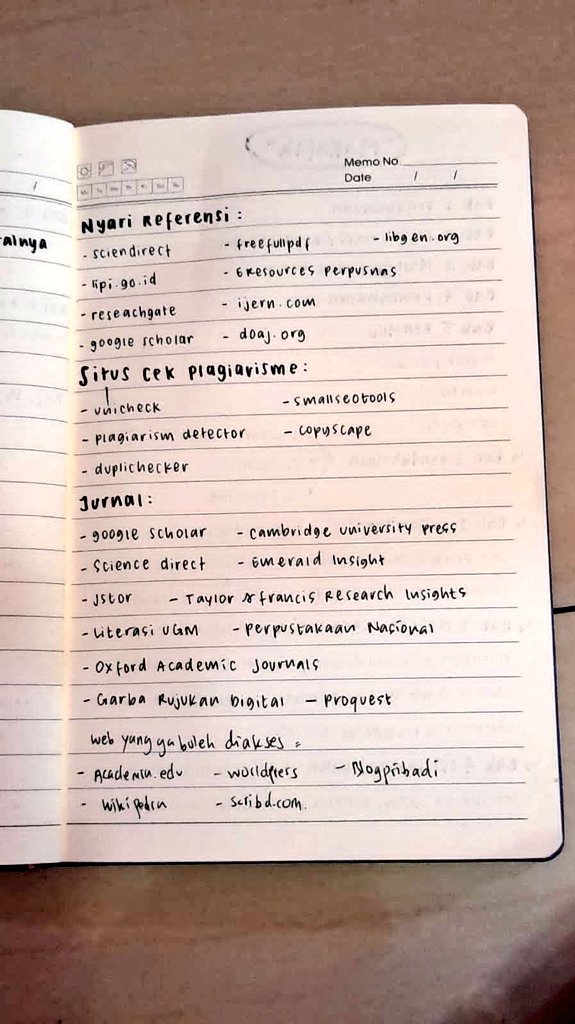 Memo No
Date / /
/
alnya
Nyari Referensi :
- sciendirect - freefullpdf - libgen.org
- lipi.go.id - Eresources perpusnas
- reseachgate - ijern.com
- google scholar - doaj.org
Situs cek plagiarisme :
- unicheck - smallseotools
- plagiarism detector - copyscape
- duplichecker
Jurnal :
- google scholar - cambridge university press
- Science direct - Emerald Insight
- Jstor - Taylor & francis Research Insights
- Literasi UGM - Perpustakaan Nasional
- Oxford Academic Journals
- Garba Rujukan Digital - Proquest
web yang ga boleh diakses :
- Academia.edu - worldpress - Blogpribadi
- Wikipedia - scribd.com.